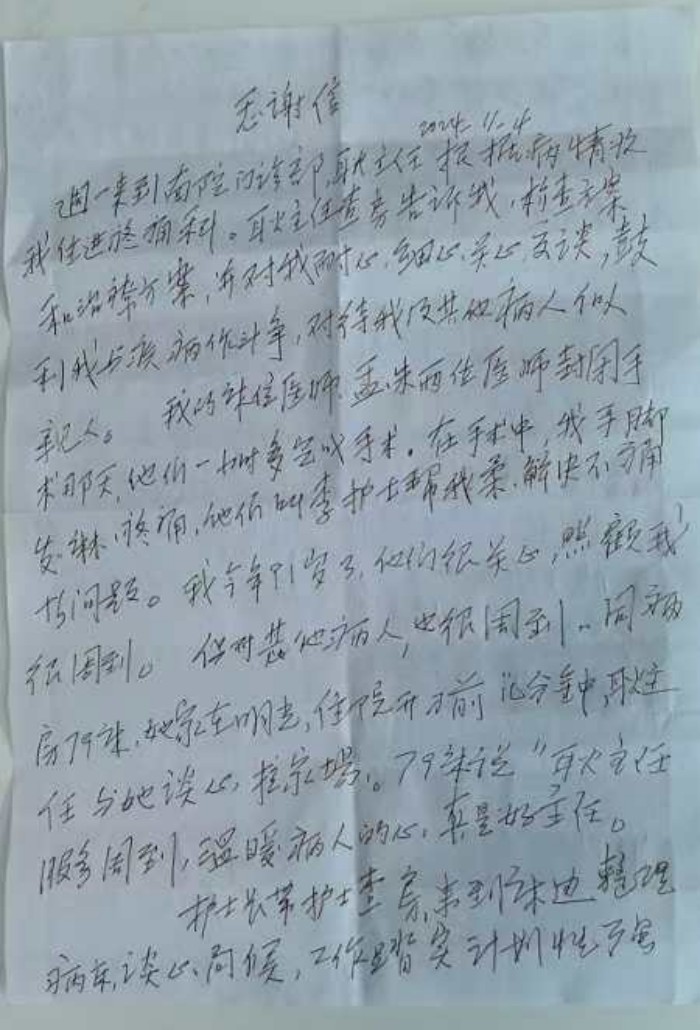 感谢信
2024-11-4
週一来到南院门诊部,耿主任根据病情收
我住进疼痛科。耿主任查房告诉我,检查方案
和治疗方案,并对我耐心、细心、关心、交谈,鼓
利我与疾病作斗争,对待我及其他病人似
亲人。 我的床位医师、孟、朱两位医师封闭手
术那天,他们一小时多完成手术。在手术中,我手脚
发麻、疼痛,他们叫李护士帮我柔、解决不痛
的问题。我今年91岁了,他们很关心,照顾我
很周到。 但对其他病人,也很周到..同病
房79床,她家在明光,住院开刀前 几分钟,耿主
任与她谈心,拉家常。79床说"耿主任
服务周到,温暖病人的心,真是好主任。
护士长带护士查房,来到床边整理
病床,谈心、问候,工作踏实计划性强